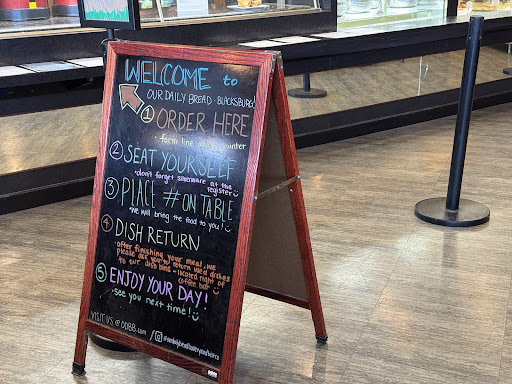 WELCOME to
OUR DAILY BREAD - BLACKSBURG
① ORDER HERE
• form line along counter
② SEAT YOURSELF
• don't forget silverware at the
register
③ PLACE # ON TABLE
• We will bring the food to you!
④ DISH RETURN
• after finishing your meal, we
please ask you to return used dishes
to our dish bins - located right of
coffee bar
⑤ ENJOY YOUR DAY!
• see you next time!
VISIT US @ ODBB.com /